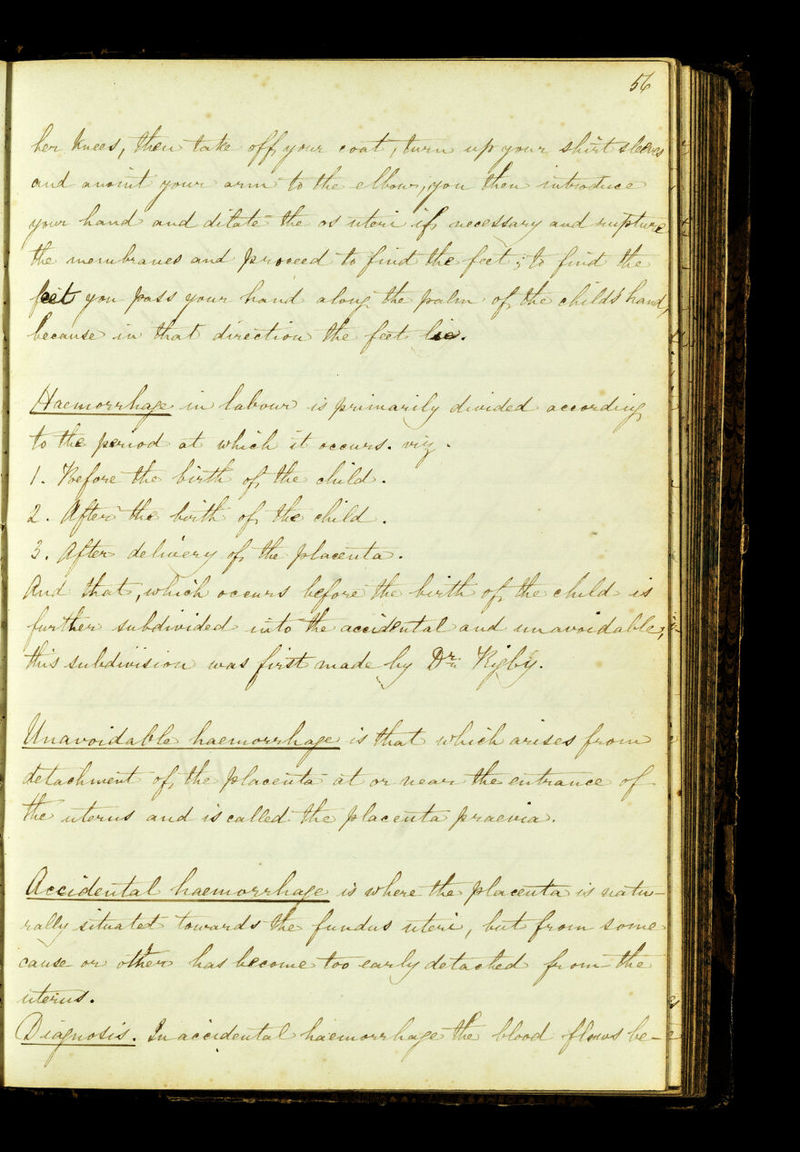 56
her knees, then take off your coat, turn up your shirt sleeves
and anoint your arm to the elbow, you then introduce
your hand and dilate the os uteri if necessary and rupture
the membranes and proceed to find the feet; to find the
feet you pass your hand along the palm of the child's hand,
because in that direction the feet lie.
Haemorrhage in labour is primarily divided according
to the period at which it occurs. viz.
1. Before the birth of the child.
2. After the birth of the child.
3. After delivery of the placenta.
And that, which occurs before the birth of the child is
further subdivided into the accidental and unavoidable;
this subdivision was first made by Dr. Rigby.
Unavoidable haemorrhage is that which arises from
detachment of the placenta at or near the entrance of
the uterus and is called the placenta praevia.
Accidental haemorrhage is where the placenta is natu-
rally situated towards the fundus uteri, but from some
cause or other has become too early detached from the
uterus.
Diagnosis. In accidental haemorrhage the blood flows be-